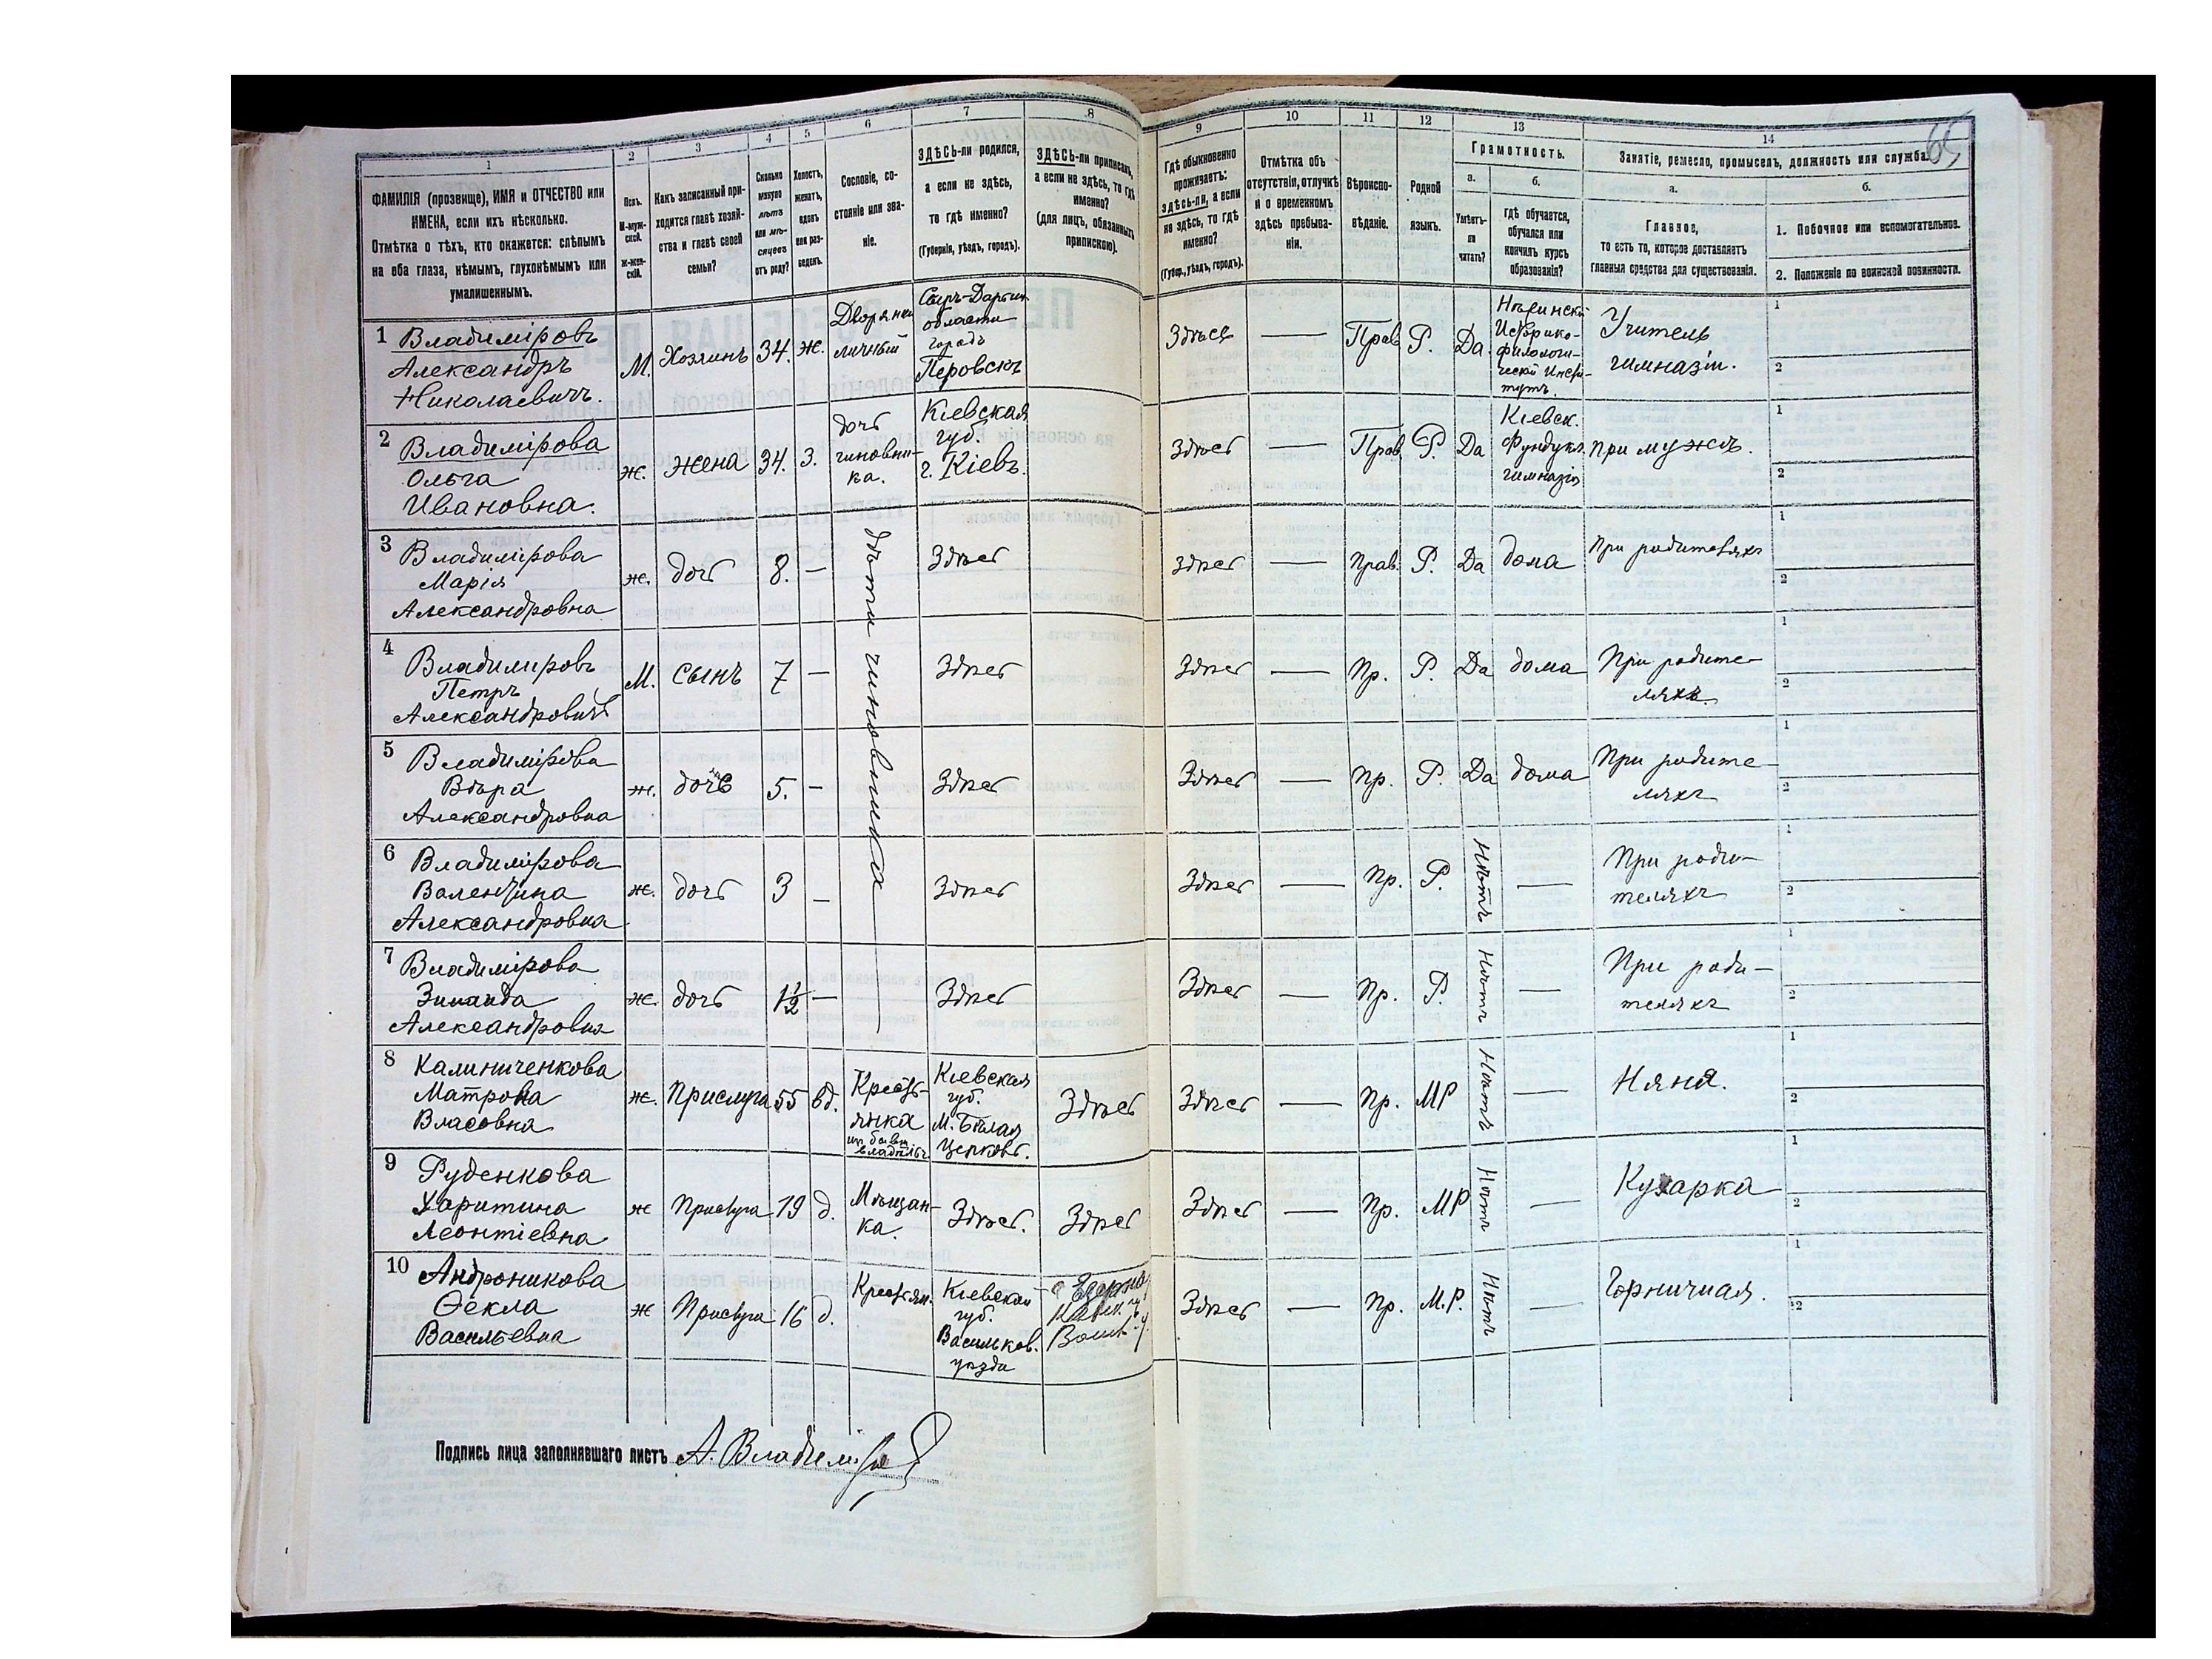 65
1
2
3
4
5
6
7
8
9
10
11
12
13
14
ФАМИЛІЯ (прозвище), ИМЯ и ОТЧЕСТВО или
ИМЕНА, если ихъ нѣсколько.
Отмѣтка о тѣхъ, кто окажется: слѣпымъ
на оба глаза, нѣмымъ, глухонѣмымъ или
умалишеннымъ.
Полъ.
М-муж-
ской.
Ж-жен-
скій.
Какъ записанный при-
ходится главѣ хозяй-
ства и главѣ своей
семьи?
Сколько
минуло
лѣтъ
или мѣ-
сяцевъ
отъ роду?
Холостъ,
женатъ,
вдовъ
или раз-
веденъ.
Сословіе, со-
стояніе или зва-
ніе.
ЗДѢСЬ-ли родился,
а если не здѣсь,
то гдѣ именно?
(Губернія, уѣздъ, городъ).
ЗДѢСЬ-ли приписанъ,
а если не здѣсь, то гдѣ
именно?
(для лицъ, обязанныхъ
припискою).
Гдѣ обыкновенно
проживаетъ:
здѣсь-ли, а если
не здѣсь, то гдѣ
именно?
(Губер., уѣздъ, городъ).
Отмѣтка объ
отсутствіи, отлучкѣ
и о временномъ
здѣсь пребыва-
ніи.
Вѣроиспо-
вѣданіе.
Родной
языкъ.
Грамотность.
а.
б.
Умѣетъ-
ли
читать?
Гдѣ обучается,
обучался или
кончилъ курсъ
образованія?
Занятіе, ремесло, промыселъ, должность или служба.
а.
б.
Главное,
то есть то, которое доставляетъ
главныя средства для существованія.
1. Побочное или вспомогательное.
2. Положеніе по воинской повинности.
1 Владиміровъ
Александръ
Николаевичъ.
М.
Хозяинъ
34.
ж.
личный
Сыръ-Дарьин
области
городъ
Перовскъ
Здѣсь
—
Прав
Р.
Да
Историко-
филологи-
ческій Инсти-
тутъ.
Учитель
гимназіи.
1
2
2 Владимірова
Ольга
Ивановна.
ж.
жена
34.
З.
дочь
чиновни-
ка.
Кіевская
губ.
г. Кіевъ.
Здѣсь
—
Прав
Р.
Да
Кіевск.
Фундукл.
гимназія
при мужѣ.
1
2
3 Владимірова
Марія
Александровна
ж.
дочь
8.
—
дѣти чиновника
Здѣсь
Здѣсь
—
Прав.
Р.
Да
дома
При родителяхъ
1
2
4 Владиміровъ
Петръ
Александровичъ
М.
сынъ
7
—
Здѣсь
Здѣсь
—
Пр.
Р.
Да
дома
При родите-
ляхъ.
1
2
5 Владимірова
Вѣра
Александровна
ж.
дочь
5.
—
Здѣсь
Здѣсь
—
Пр.
Р.
Да
дома
При родите-
ляхъ
1
2
6 Владимірова
Валентина
Александровна
ж.
дочь
3
—
Здѣсь
Здѣсь
—
Пр.
Р.
Нѣтъ
—
При роди-
теляхъ
1
2
7 Владимірова
Зинаида
Александровна
ж.
дочь
1½
—
Здѣсь
Здѣсь
—
Пр.
Р.
Нѣтъ
—
При роди-
теляхъ
1
2
8 Калиниченкова
Матрона
Власовна
ж.
Прислуга
55
вд.
Кресть-
янка
Кіевская
губ.
М. Бѣлая
Церковь.
Здѣсь
Здѣсь
—
Пр.
МР
Нѣтъ
—
Няня.
1
2
9 Руденкова
Харитина
Леонтіевна
ж
Прислуга
19
д.
Мѣщан-
ка.
Здѣсь.
Здѣсь
Здѣсь
—
Пр.
МР
Нѣтъ
—
Кухарка
1
2
10 Андроникова
Ѳекла
Васильевна
ж
Прислуга
16
д.
Крестьян.
Кіевской
губ.
Васильков.
уѣзда
Здѣсь
—
Пр.
М.Р.
Нѣтъ
—
Горничная.
1
2
Подпись лица заполнявшаго листъ А. Владиміровъ